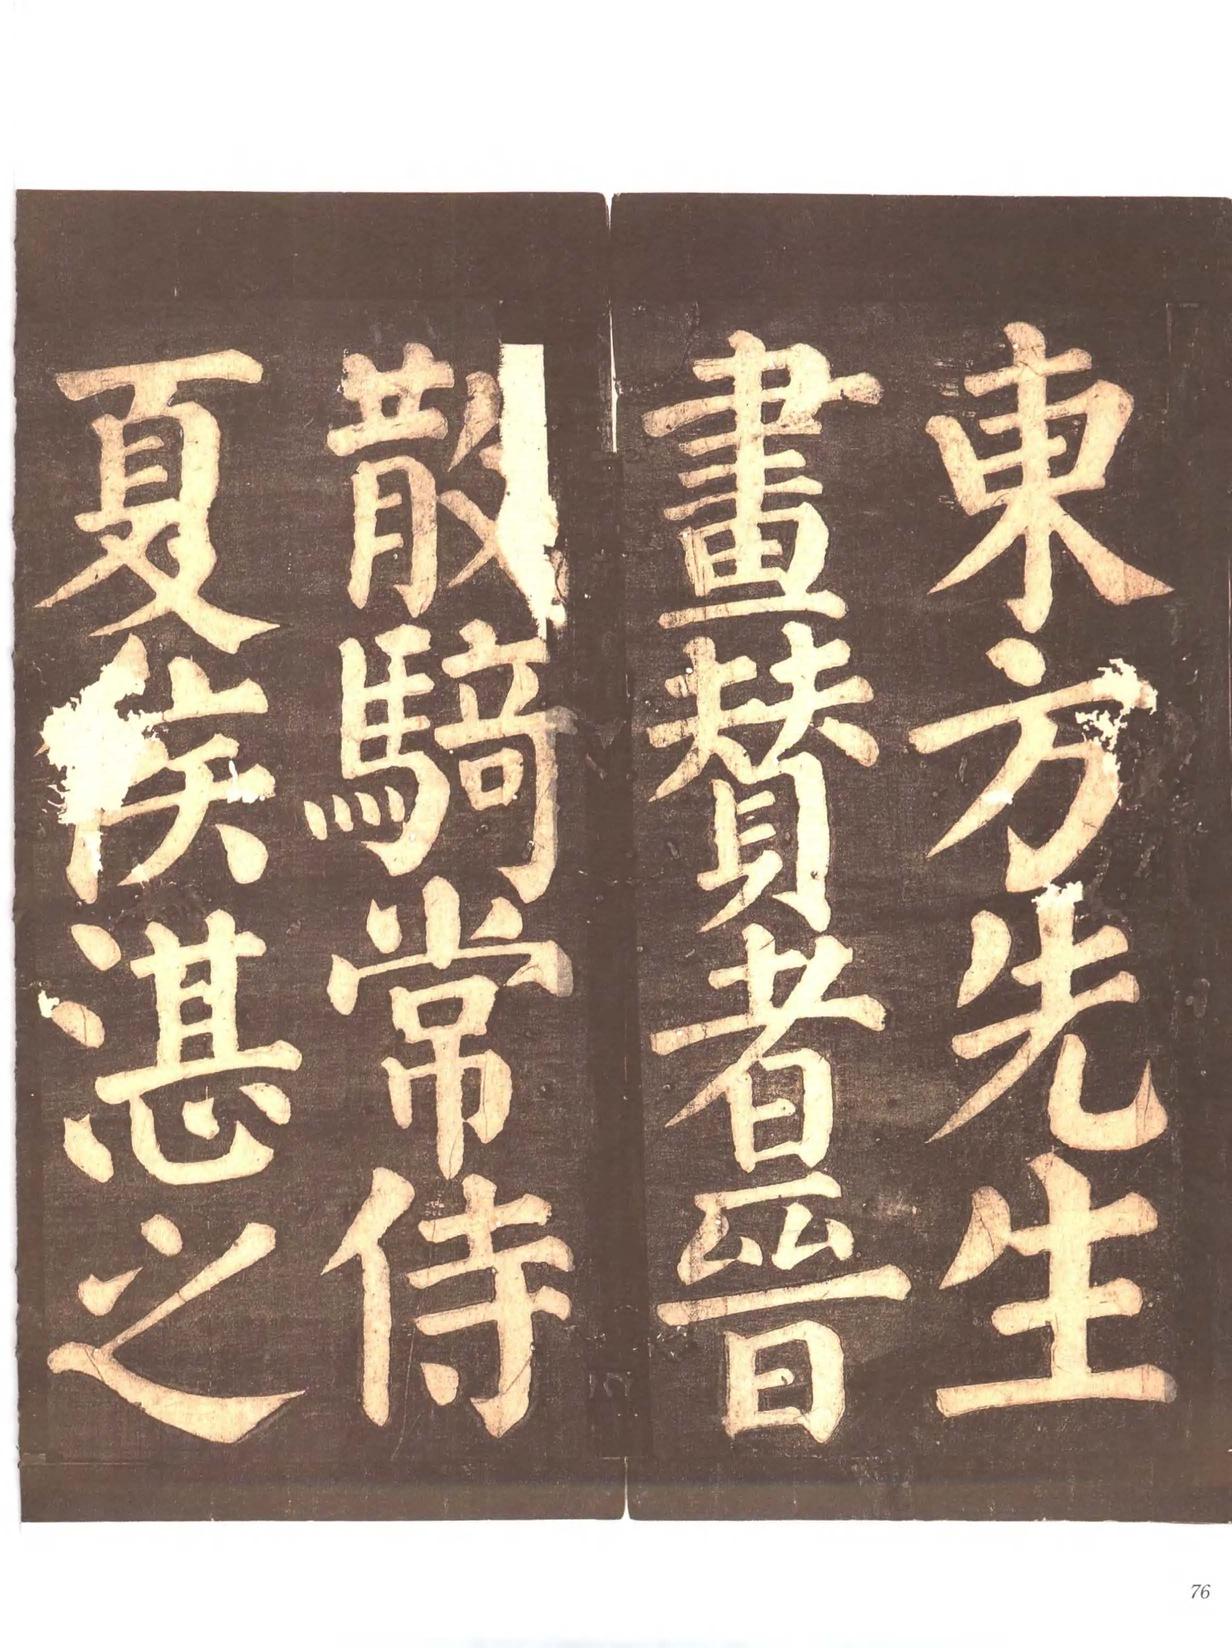 東方先生
畫賛者晉
散騎常侍
夏侯湛之
76